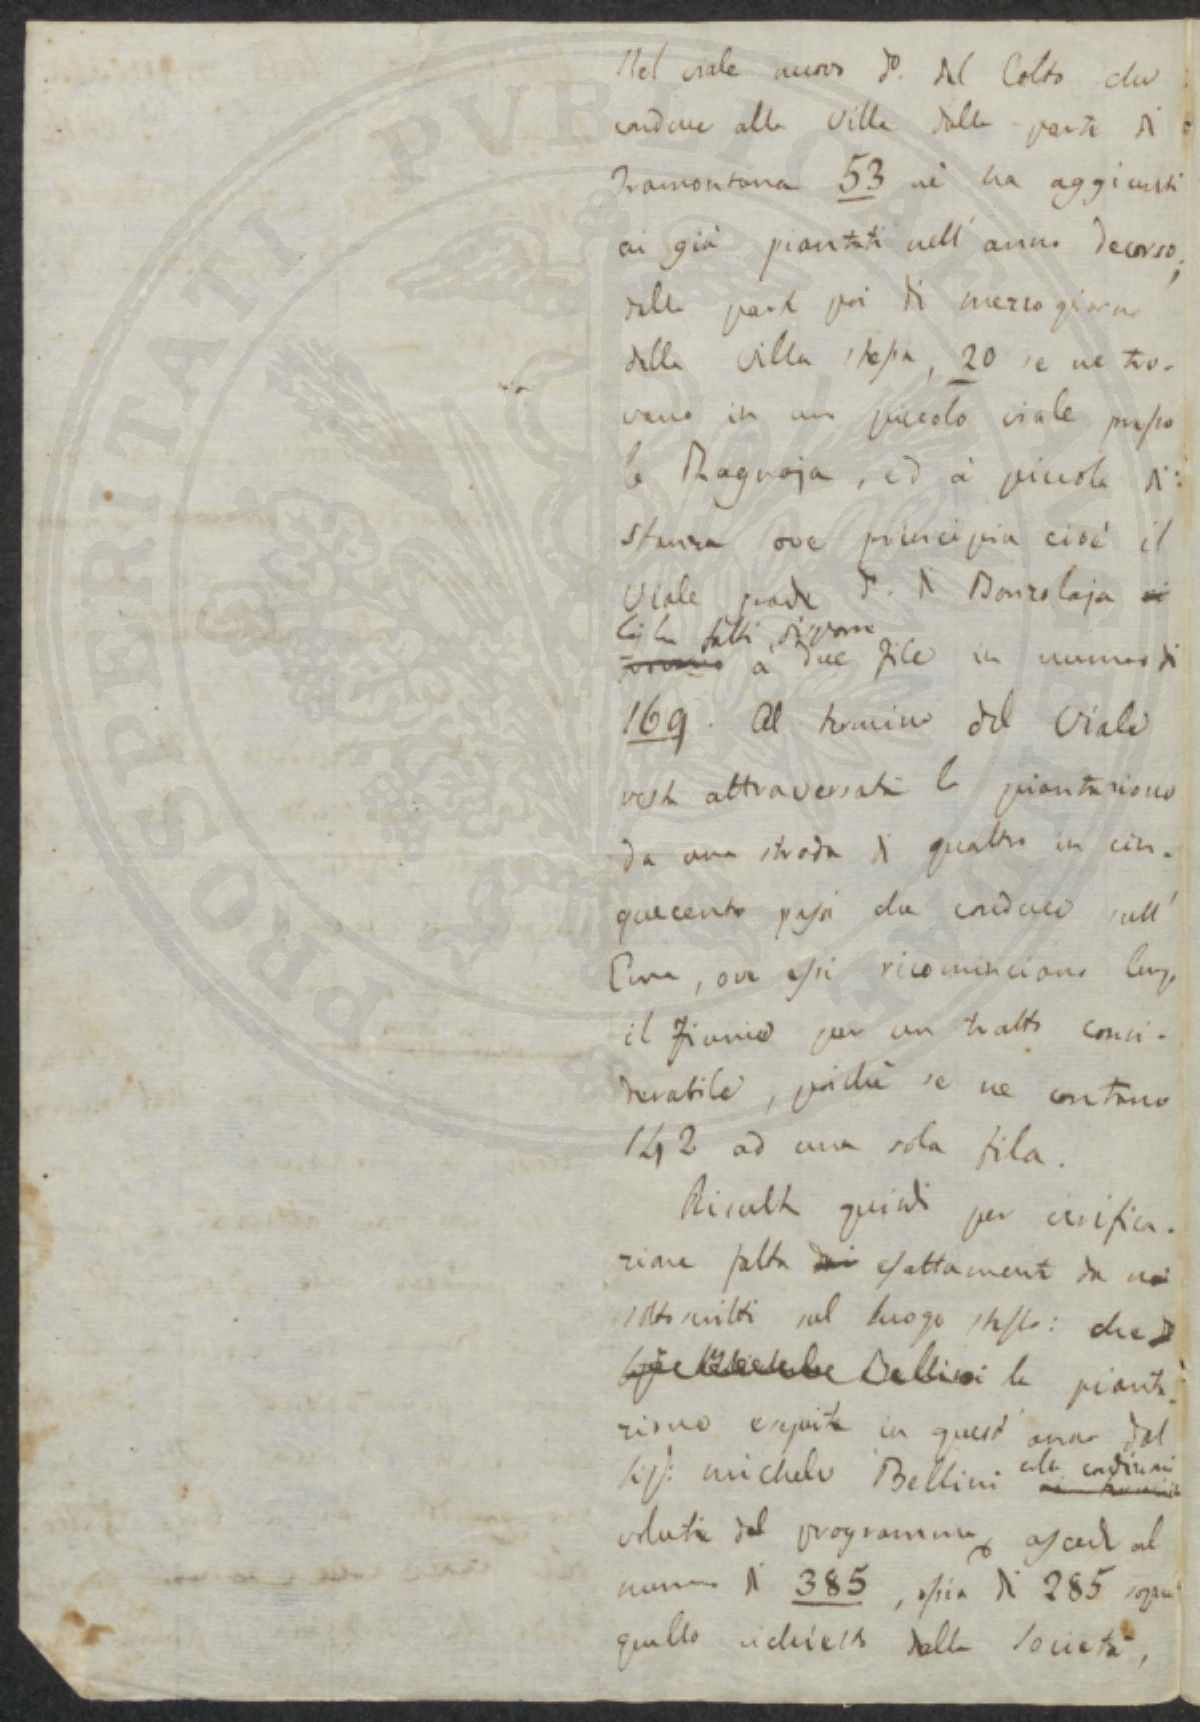 Nel viale nuovo d.º del Colto che
conduce alla Villa dalla parte di
Tramontana 53 ne ha aggiunti
ai già piantati nell'anno decorso;
dalla parte poi di mezzogiorno
della Villa stessa, 20 se ne tro-
vano in un piccolo viale presso
la Ragnaja, ed a piccola di-
stanza ove principia cioè il
Viale grande d.º di Bonzolaja
fatti disporre
a due file in numero di
169. Al termine del Viale
resta attraversata la piantazione
da una strada di quattro in cin-
quecento passi che conduce sull'
Era, ove essi ricominciano lungo
il fiume per un tratto consi-
derabile, poichè se ne contano
142 ad una sola fila.
Risulta quindi per verifica-
zione fatta esattamente da noi
sottoscritti sul luogo stesso: che
Bellini la pianta-
zione eseguita in quest'anno dal
Sig.r Michele Bellini alle condizioni
volute dal programma, ascende al
numero di 385, ossia di 285 sopra
quello richiesto dalla Società,
PROSPERITATI PVBLICAE